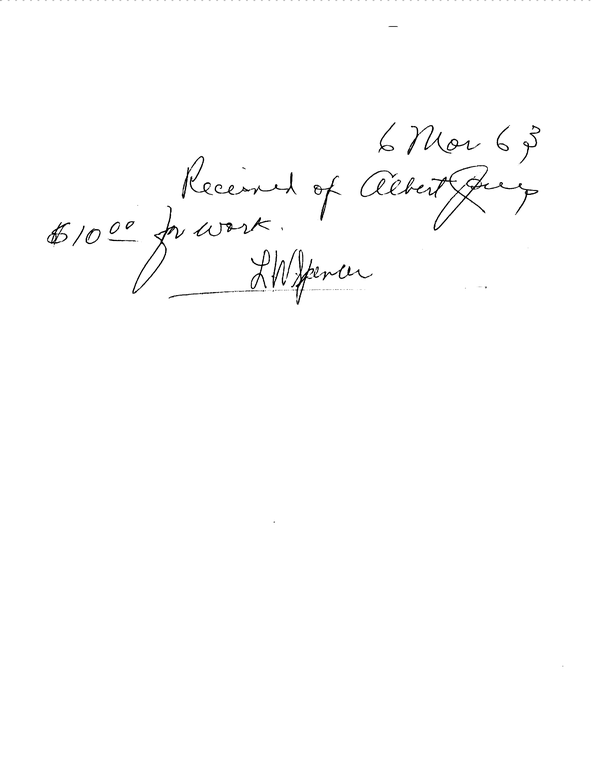 6 Mar 63
Received of Albert
$10.00 for work.
L W Spencer